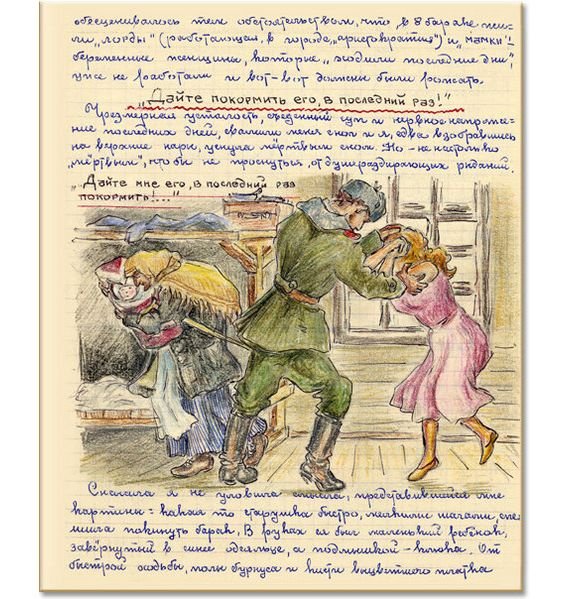 обесценивалось тем обстоятельством, что в 8 бараке жи-
ли „лорды" (работающая в городе „аристократия") и „мамки"-
беременные женщины, которые „ходили последние дни",
уже не работали и вот-вот должны были рожать.
„Дайте покормить его, в последний раз!"
Чрезмерная усталость, съеденный суп и нервное напряже-
ние последних дней, свалили меня с ног и я, едва взобравшись
на верхние нары, уснула мёртвым сном. Но - не настолько
„мёртвым", что бы не проснуться, от душераздирающих рыданий.
„Дайте мне его, в последний раз
покормить!..."
Сначала я не уловила смысла, представившейся мне
картины: какая то старушка быстро, мелкими шагами, спе-
шила покинуть барак. В руках её был маленький ребёнок,
завёрнутый в синее одеяльце, а подмышкой - клюка. От
быстрой ходьбы, полы бурнуса и кисти выцветшего платка